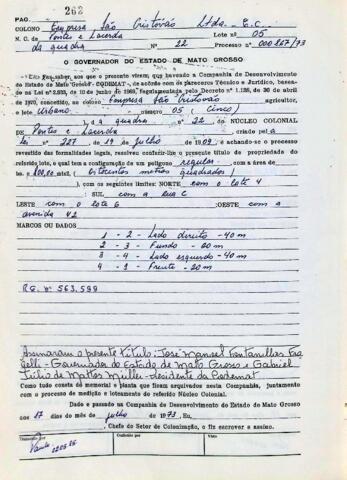 PAG. 262
COLONO Empresa São Cristóvão Ltda. E.C. Lote nº 05
N. C. de Pontes e Lacerda
da quadra Nº 22 Processo nº 000267/73
O GOVERNADOR DO ESTADO DE MATO GROSSO
Faz saber, aos que o presente virem, que havendo a Companhia de Desenvolvimento
do Estado de Mato Grosso CODEMAT, de acordo com os pareceres Técnico e Jurídico, basea-
do na Lei nº de 10 de junho de Regulamentada pelo Decreto nº 1.138, de 30 de abril
de 1970, concedido, ao colono Empresa São Cristóvão agricultor,
o lote Urbano número 05 (cinco)
da quadra nº 22 DO NÚCLEO COLONIAL
DE Pontes e Lacerda criado pela
Lei nº 227, de 19 de julho de 1909, e achando-se o processo
revestido das formalidades legais, resolveu conferir-lhe o presente título de propriedade do
referido lote, o qual tem a configuração de um polígono regular com a área de
800,00 (Oitocentos metros quadrados)
), com os seguintes limites: NORTE com o lote 4
: SUL com a rua C
LESTE com o lote 6 :OESTE com a
avenida 42
MARCOS OU DADOS
1 - 2 - Lado direito - 40 m
2 - 3 - Fundo - 20 m
3 - 4 - Lado esquerdo - 40 m
4 - 1 - Frente - 20 m
R.G. nº 563.599
Assinaram o presente título: José Manoel Fontanillas Fra
gelli - Governador do Estado de Mato Grosso e Gabriel
Júlio de Mattos Müller - Presidente da Codemat
Como tudo consta do memorial e planta que ficam arquivados nesta Companhia, juntamente
com o processo de medição e loteamento do referido Núcleo Colonial.
Dado e passado na Companhia de Desenvolvimento do Estado de Mato Grosso
aos 17 dias do mês de julho de 1973, Eu,
, Chefe do Setor de Colonização, o fiz escrever e assino.
Conferido por Visto